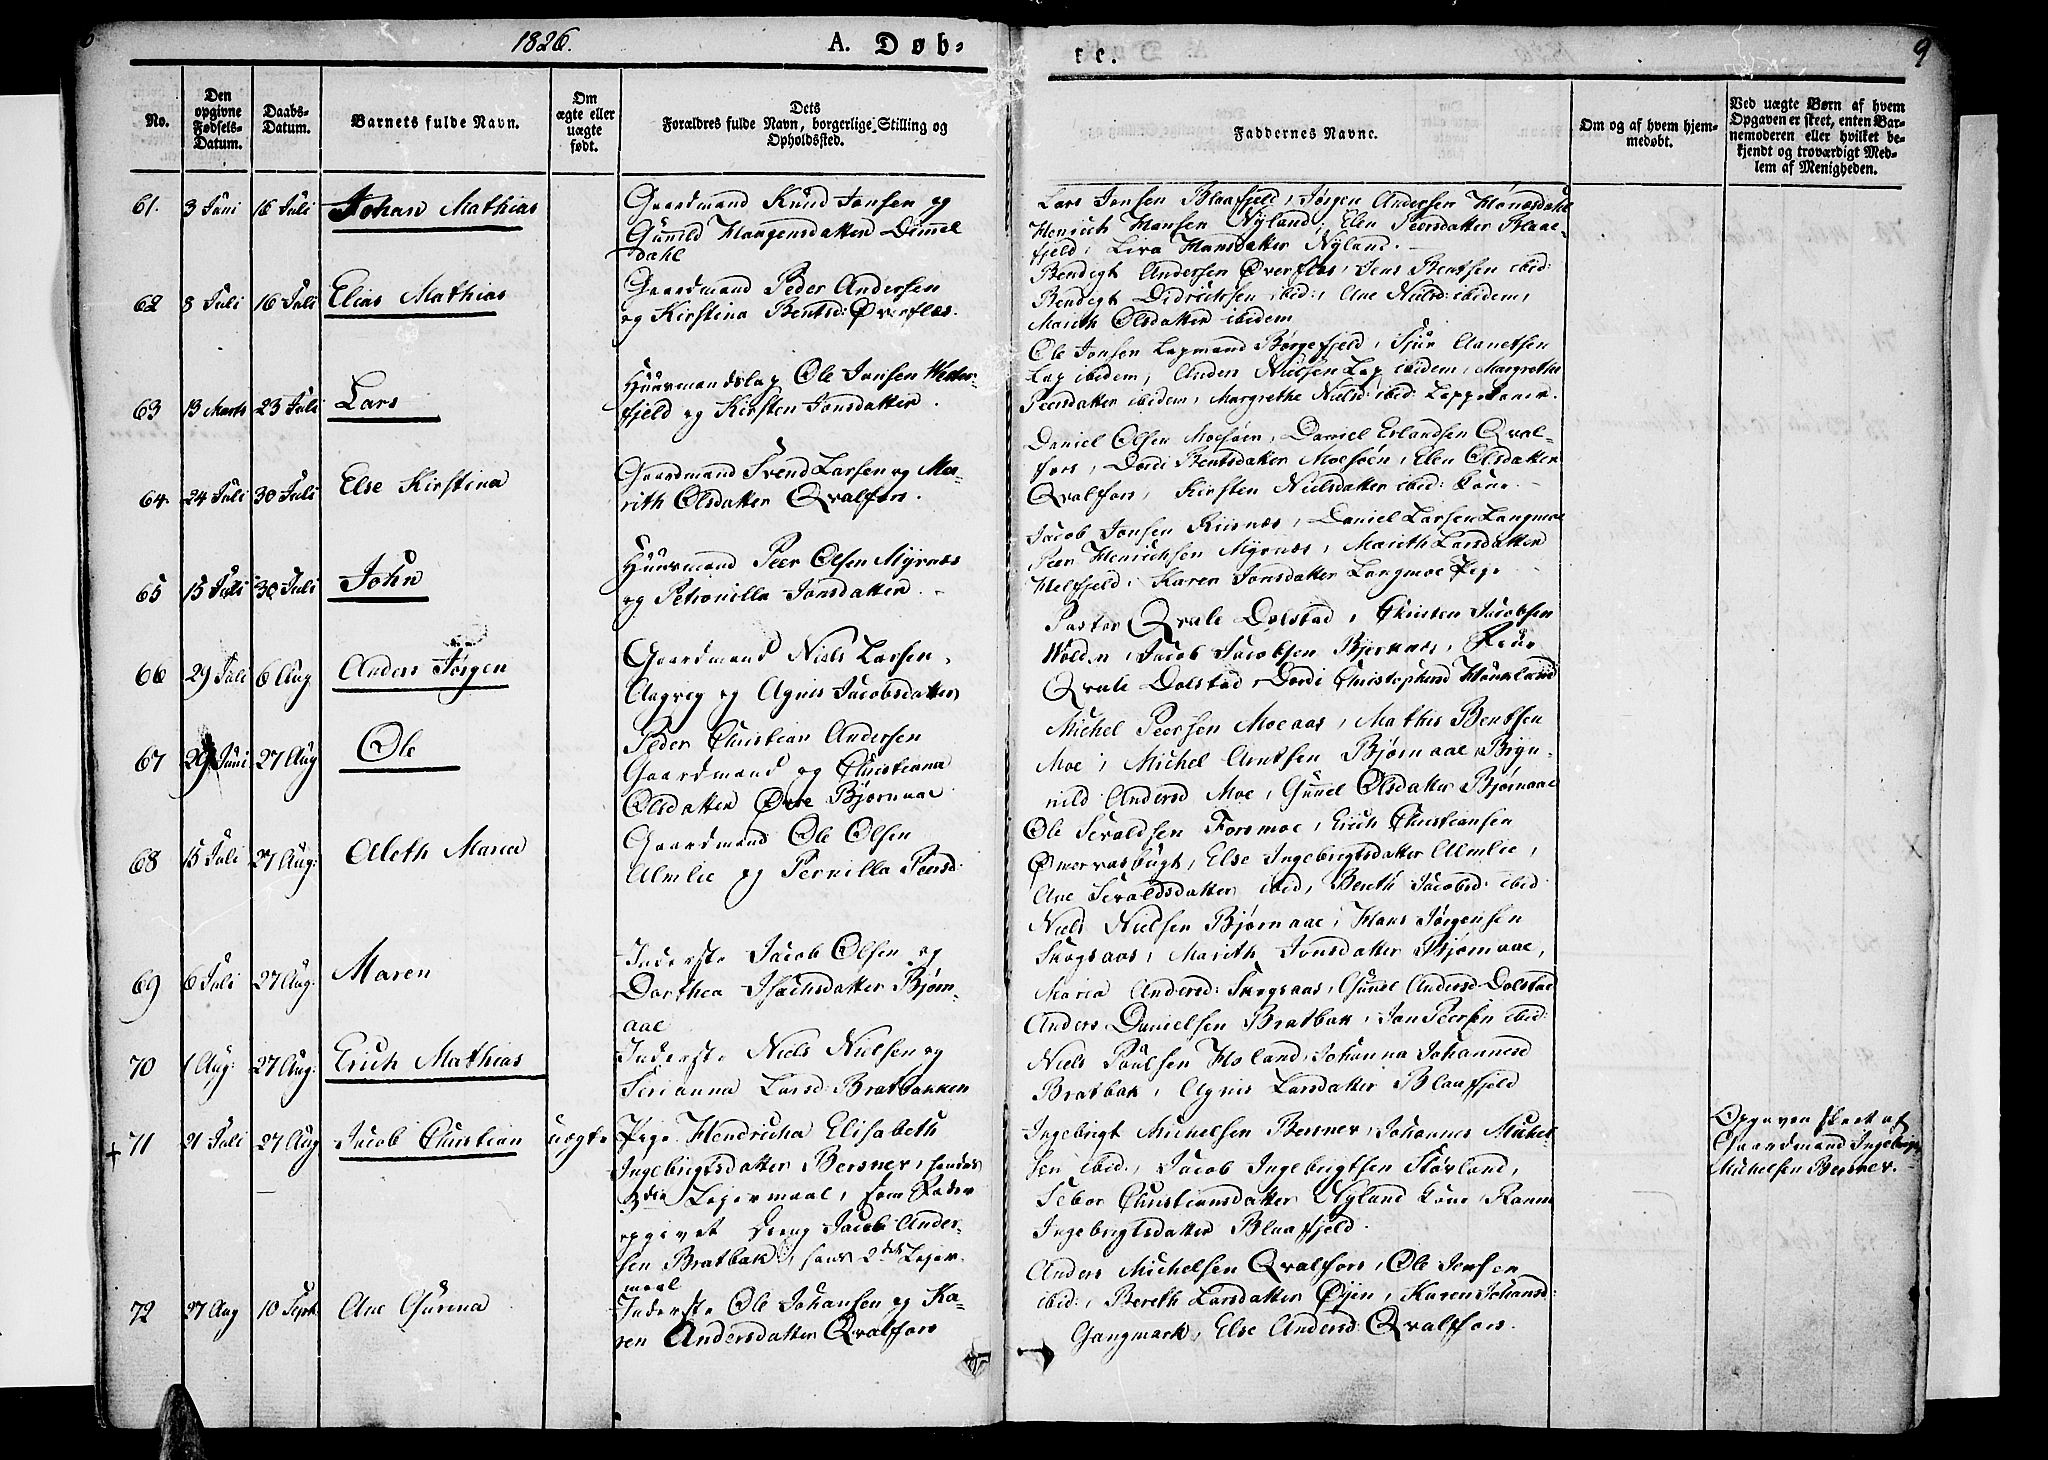 1826.
A. Døb-
te.
9
No.
Den
opgivne
Fødsels-
Datum.
Daabs-
Datum.
Barnets fulde Navn.
Om
ægte eller
uægte
født.
Dets
Forældres fulde Navn, borgerlige Stilling og
Opholdssted.
Faddernes Navne.
Om og af hvem hjem-
medøbt.
Ved uægte Børn af hvem
Opgaven er skeet, enten Bar-
nemoderen eller hvilket be-
kjendt og troværdigt Med-
lem af Menigheden.
61. 3 Juni 16 Juli Johan Mathias
Gaardmand Knud Jonsen og
Gunild Haagensdatter Dimel
dahl
Lars Jonsen Blaafjeld, Jørgen Andersen
Henrich Hansen Nyland, Elen Peersdatter Blaae-
fjeld, Liva Hansdatter Nyland.
62 8 Juli 16 Juli Elias Mathias
Gaardmand Peder Andersen
og Kirstina Bentsd: Øverflos.
Bendigt Andersen Øverflos, Jens Bentsen ibid:
Bendigt Didrichsen ibid:, Ane Nielsd: ibidem,
Marith Olsdatter ibidem
63 13 Marts 23 Juli Lars
Huusmandslap Ole Jonsen Wester-
fjeld og Kirsten Jonsdatter.
Ole Jonsen Lapmand Børgefjeld, Sjur Aanetsen
Lap ibidem, Anders Nielsen Lap ibidem, Margrethe
Peersdatter ibidem, Margrethe Nielsd: ibid: Lappekoner.
64. 24 Juli 30 Juli Else Kirstina
Gaardmand Svend Larsen og Ma-
rith Olsdatter Qvalfors.
Daniel Olsen Moesøen, Daniel Erlandsen Qval-
fors, Dordi Bentsdatter Moesøen, Elen Olsdatter
Qvalfors, Kirsten Nielsdatter ibid: Kone.
65 15 Juli 30 Juli John
Huusmand Peer Olsen Myrnæs
og Petronilla Jonsdatter.
Jacob Jonsen Riisnæs, Daniel Larsen Langmoe
Peer Henrichsen Myrnæs, Marith Larsdatter
Helfjeld, Karen Jonsdatter Langmoe Pige
66 29 Juli 6 Aug Anders Jørgen
Gaardmand Niels Larsen
Aagvig og Agnis Jacobsdatter
Pastor Qvale Dolstad, Christen Jacobsen
Wolden, Jacob Jacobsen Bjernæs, Frue
Qvale Dolstad, Dordi Christophersd
67 29 Juni 27 Aug Ole
Peder Christian Andersen
Gaardmand og Christiana
Olsdatter Øvre Bjørnaae
Michel Peersen Moeaas, Mathis Bentsen
Moe, Michel Arntsen Bjørnaae, Bryn-
nild Andersd Moe, Gunel Olsdatter Bjørnaae
68 15 Juli 27 Aug: Aleth Maria
Gaardmand Ole Olsen
Almlie og Pernilla Peersd:
Ole Sevaldsen Forsmoe, Erich Christiansen
Ømervasbugt, Else Ingebrigtsdatter Almlie,
Ane Sevaldsdatter ibid, Berith Jacobsd: ibid:
X
69 6 Juli 27 Aug: Maren
Inderste Jacob Olsen og
Dorthea Isachsdatter Bjørn-
aae
Niels Nielsen Bjørnaae, Hans Jørgensen
Skogsaas, Marith Jonsdatter Bjørnaae,
Maria Andersd: Skogsaas, Gunel Andersd: Dolstad
70 1 Aug: 27 Aug: Erich Mathias
Inderste Niels Nielsen og
Serianna Larsd: Bratbakken
Anders Danielsen Bratbak, Jon Peersen ibid:
Niels Poulsen Holand, Johanna Johannesd
Bratbak, Agnis Larsdatter Blaafjeld
+ 71 21 Juli 27 Aug Jacob Christian uægte
Pige Hendricha Elisabeth
Ingebrigtsdatter Bersner, hendes
3die Lejermaal, som Fader
opgivet Dreng Jacob Ander-
sen Bratbak, hans 2det Lejer-
maal
Ingebrigt Michelsen Bersner, Johannes Michel-
sen ibid:, Jacob Ingebrigtsen Støvland,
Sebor Christiansdatter Nyland Kone
Ingebrigtsdatter Blaafjeld.
Opgaven skeet af
Gaardmand Ingebrigt
Michelsen Bersner.
72 27 Aug 10 Sept Ane Gurina
Inderste Ole Johansen og Ka-
ren Andersdatter Qvalfors
Anders Michelsen Qvalfors, Ole Jonsen
ibid:, Bereth Larsdatter Øijen, Karen Johansd:
Gangmark, Else Andersd: Qvalfors.